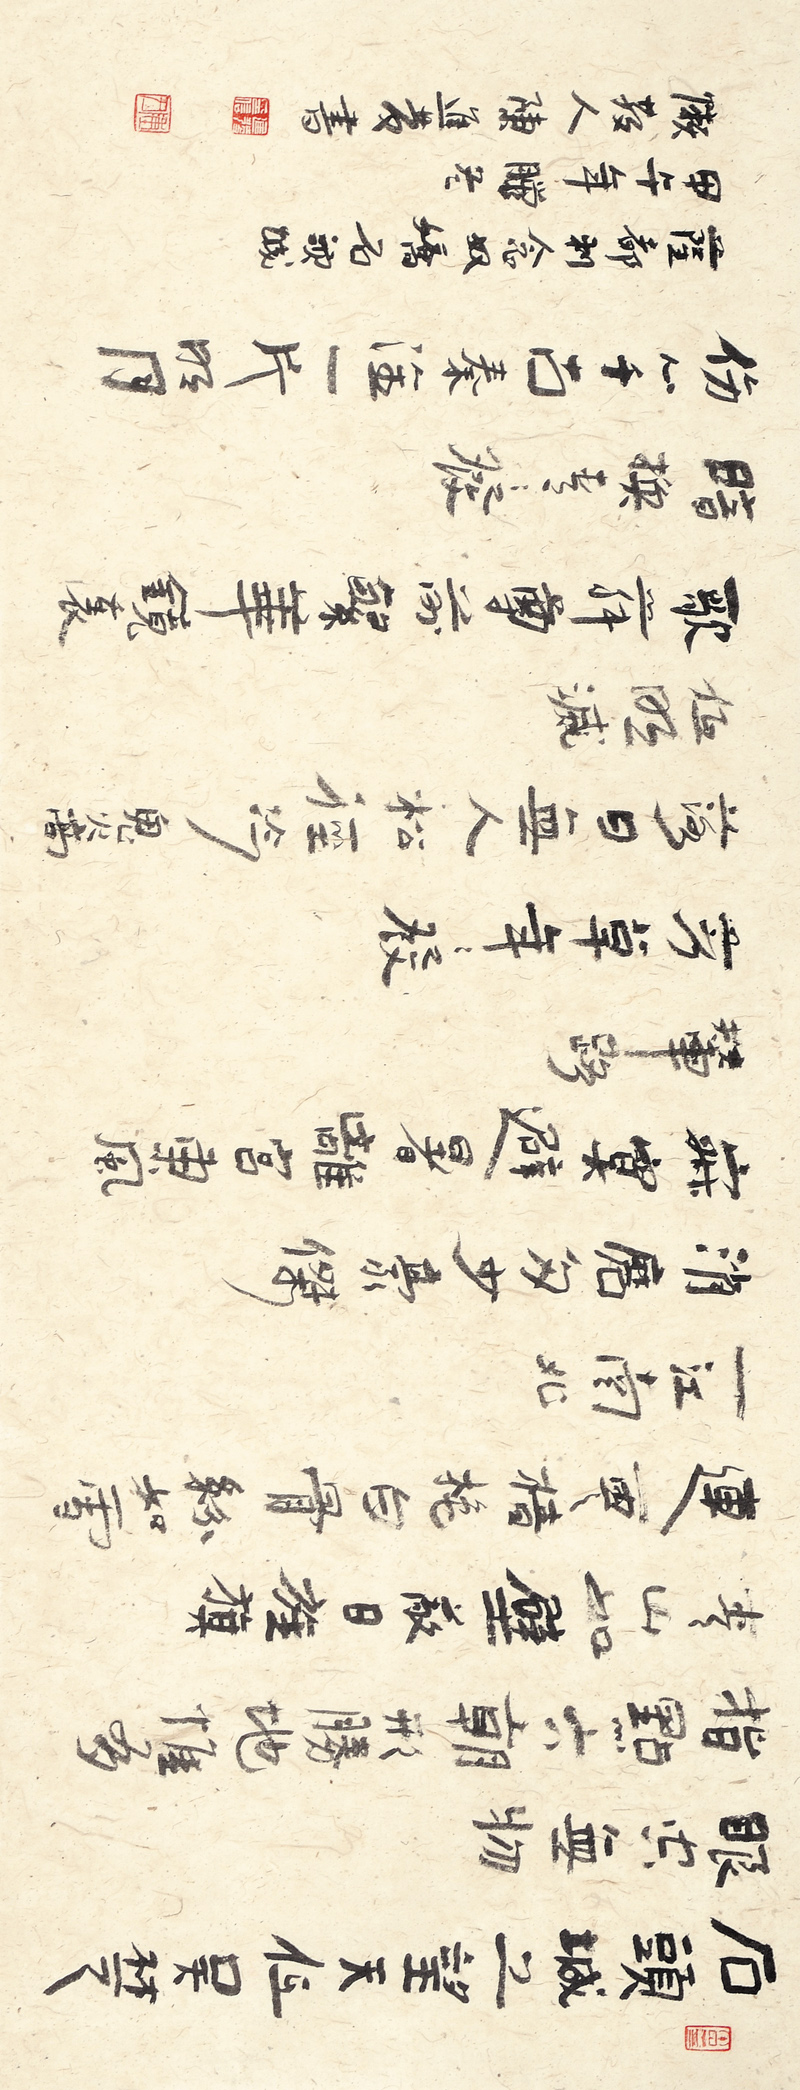 石頭城上望天低吳楚
眼空無物
指點六朝形勝地惟有
青山如壁蔽日旌旗
連雲檣櫓白骨紛如雪
一江南北
消磨多少豪傑
寂寞避暑離宮東風
輦路
芳草年々發
落日無人松徑冷鬼火高
低明滅
歌舞尊前繁華鏡裏
暗換青々髮
傷心千古秦淮一片明月
薩都剌念奴嬌石頭城
甲午年臘冬
人陳書